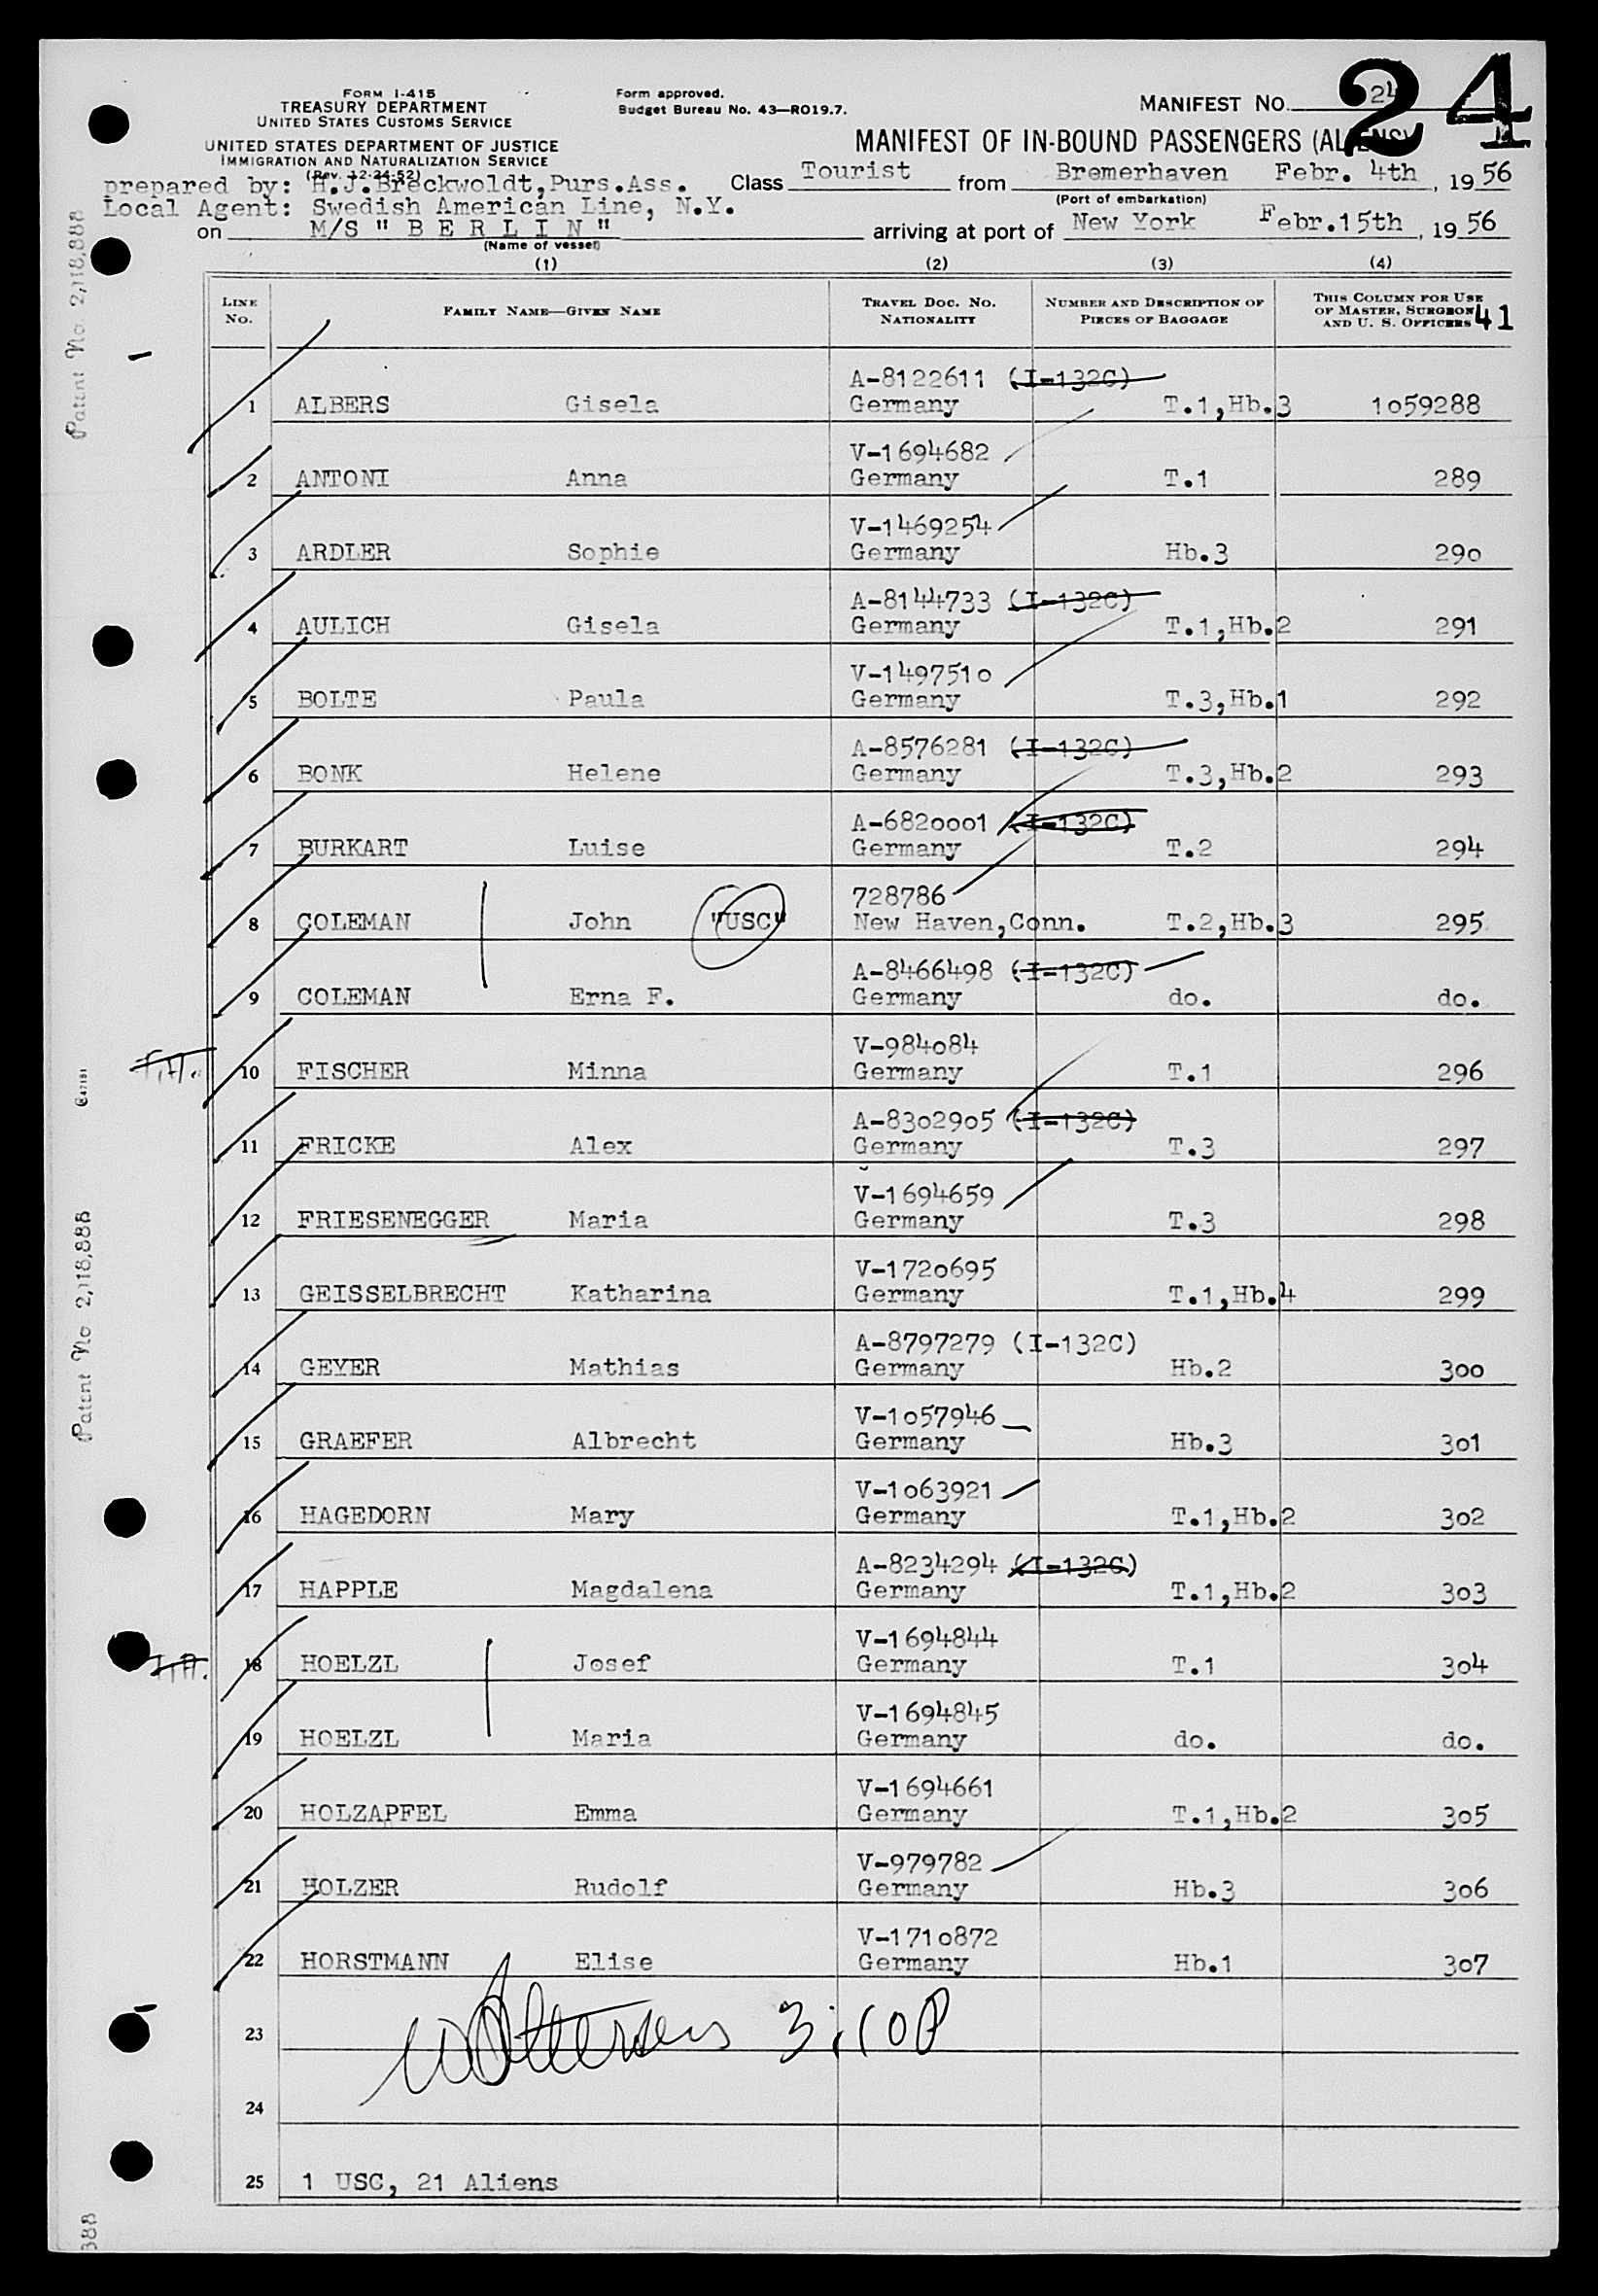 24
FORM I-415
TREASURY DEPARTMENT
UNITED STATES CUSTOMS SERVICE
UNITED STATES DEPARTMENT OF JUSTICE
IMMIGRATION AND NATURALIZATION SERVICE
(Rev. 12-24-52)
Form approved.
Budget Bureau No. 43—RO19.7.
MANIFEST NO. 24
MANIFEST OF IN-BOUND PASSENGERS (ALIENS)
prepared by: H.J.Breckwoldt,Purs.Ass. Class Tourist from Bremerhaven Febr. 4th, 1956
(Port of embarkation)
Local Agent: Swedish American Line, N.Y.
on M/S " B E R L I N " arriving at port of New York Febr.15th, 1956
(Name of vessel)
(1) (2) (3) (4)
LINE NO. FAMILY NAME—GIVEN NAME TRAVEL DOC. NO. NATIONALITY NUMBER AND DESCRIPTION OF PIECES OF BAGGAGE THIS COLUMN FOR USE OF MASTER, SURGEON AND U. S. OFFICERS 41
A-8122611 (I-132C)
1 ALBERS Gisela Germany T.1,Hb.3 1059288
V-1694682
2 ANTONI Anna Germany T.1 289
V-1469254
3 ARDLER Sophie Germany Hb.3 290
A-8144733 (I-132C)
4 AULICH Gisela Germany T.1,Hb.2 291
V-1497510
5 BOLTE Paula Germany T.3,Hb.1 292
A-8576281 (I-132C)
6 BONK Helene Germany T.3,Hb.2 293
A-6820001 (I-132C)
7 BURKART Luise Germany T.2 294
728786
8 COLEMAN John "USC" New Haven,Conn. T.2,Hb.3 295
A-8466498 (I-132C)
9 COLEMAN Erna F. Germany do. do.
V-984084
10 FISCHER Minna Germany T.1 296
A-8302905 (I-132C)
11 FRICKE Alex Germany T.3 297
V-1694659
12 FRIESENEGGER Maria Germany T.3 298
V-1720695
13 GEISSELBRECHT Katharina Germany T.1,Hb.4 299
A-8797279 (I-132C)
14 GEYER Mathias Germany Hb.2 300
V-1057946
15 GRAEFER Albrecht Germany Hb.3 301
V-1063921
16 HAGEDORN Mary Germany T.1,Hb.2 302
A-8234294 (I-132C)
17 HAPPLE Magdalena Germany T.1,Hb.2 303
V-1694844
18 HOELZL Josef Germany T.1 304
V-1694845
19 HOELZL Maria Germany do. do.
V-1694661
20 HOLZAPFEL Emma Germany T.1,Hb.2 305
V-979782
21 HOLZER Rudolf Germany Hb.3 306
V-1710872
22 HORSTMANN Elise Germany Hb.1 307
23 3:10P
24
25 1 USC, 21 Aliens
Patent No. 2,118,888
Patent No 2,118,888
888